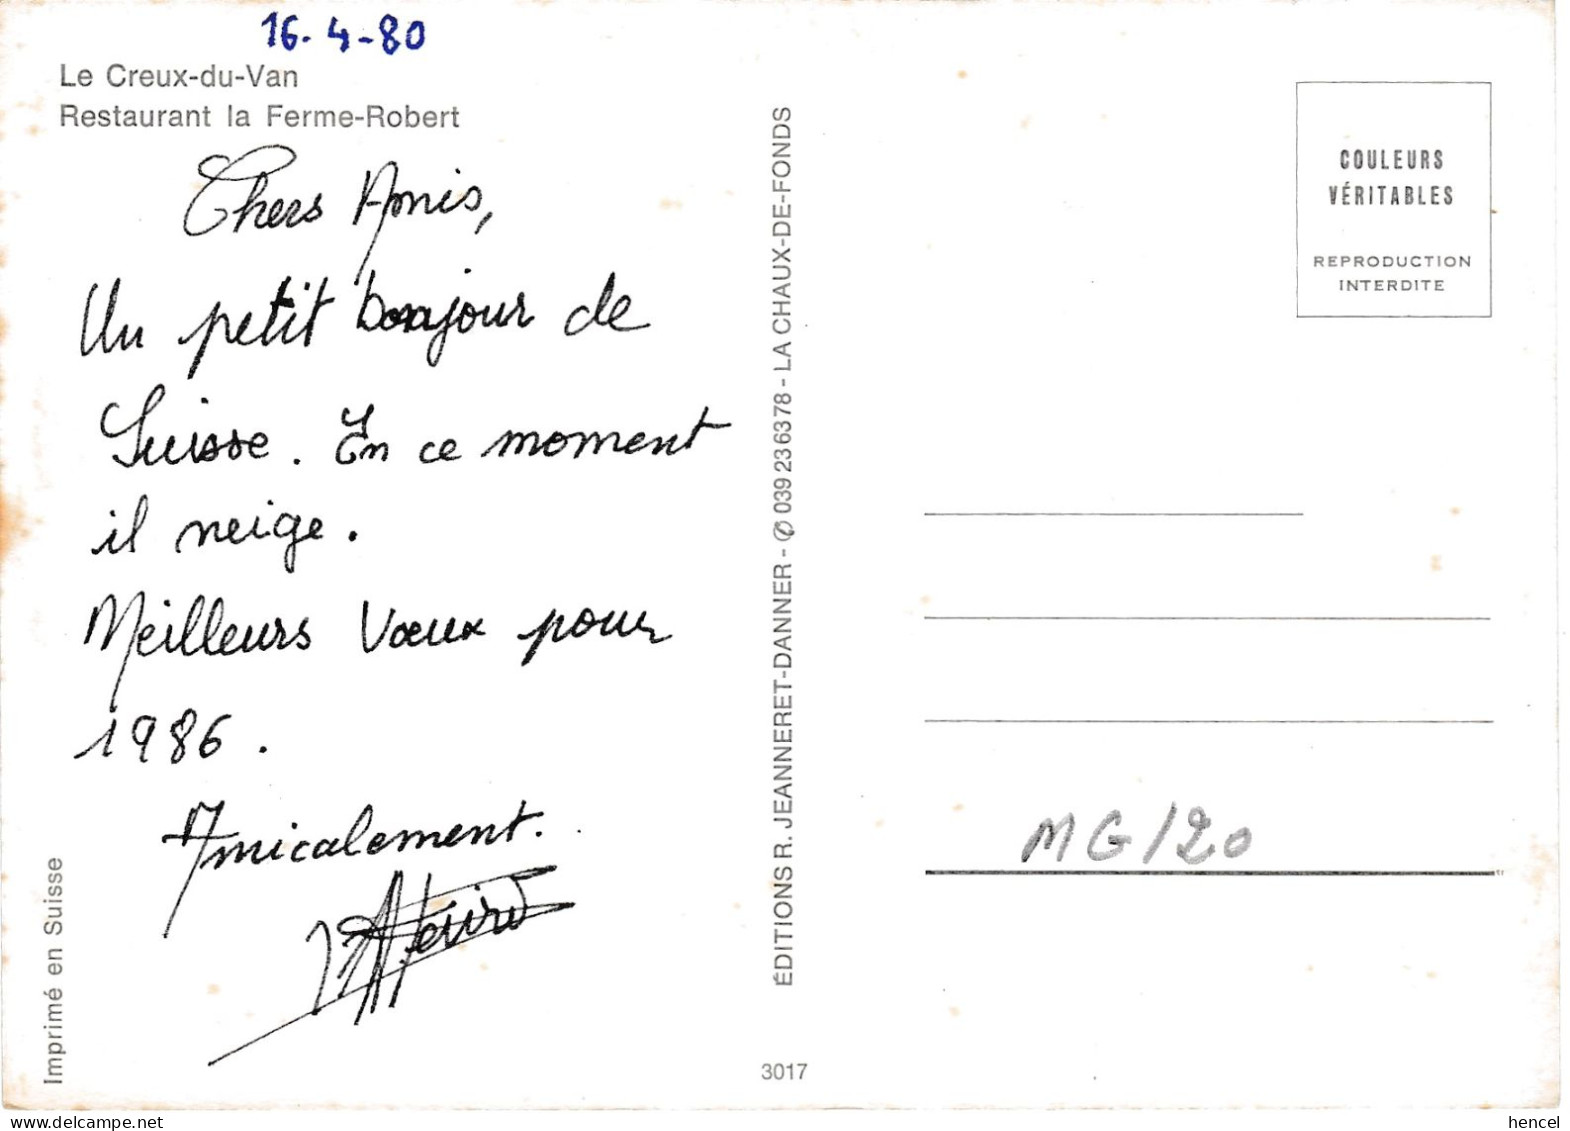 16-4-80
Le Creux-du-Van
Restaurant la Ferme-Robert
Chers Amis,
Un petit bonjour de
Suisse. En ce moment
il neige.
Meilleurs Vœux pour
1986.
Amicalement.
Imprimé en Suisse
ÉDITIONS R. JEANNERET-DANNER - ✆ 039 236378 - LA CHAUX-DE-FONDS
3017
COULEURS
VÉRITABLES
REPRODUCTION
INTERDITE
MG/20
hencel